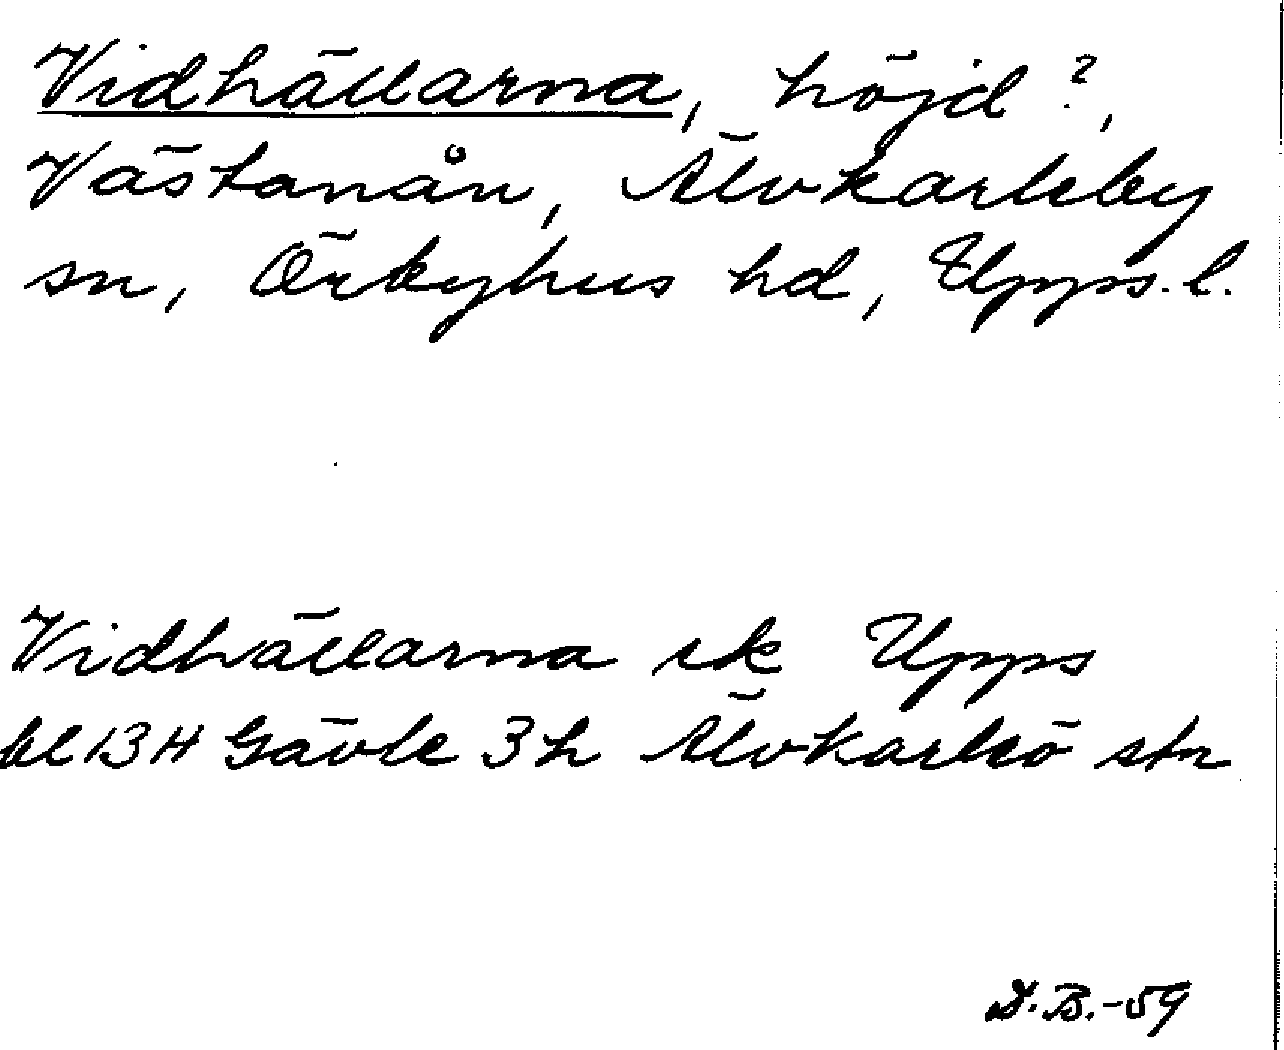 Vidhällarna, höjd?,
Västanån, Älvkarleby
sn, Örbyhus hd, Upps. l.
Vidhällarna ek Upps
bl 13H Gävle 3h Älvkarleö stn
D.B.-59